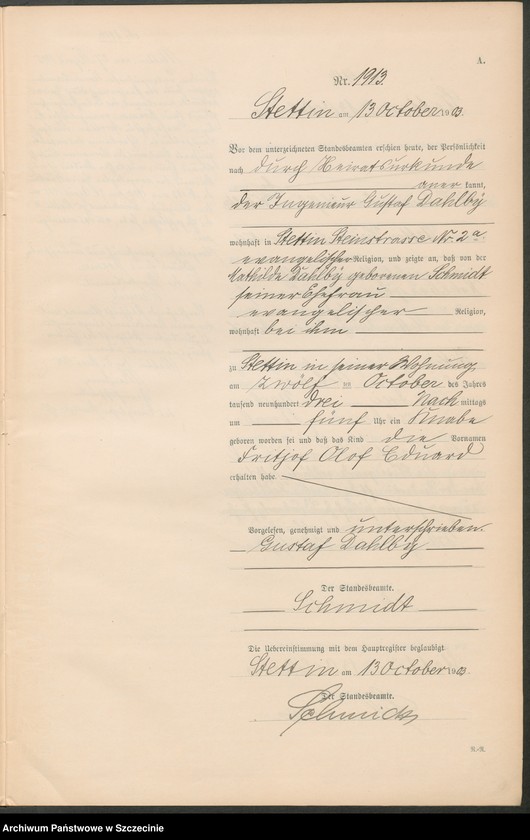 A.
Nr. 1913.
Stettin am 13 October 1903.
Vor dem unterzeichneten Standesbeamten erschien heute, der Persönlichkeit
nach durch Heiratsurkunde
aner kannt,
der Ingenieur Gustaf Dahlby
wohnhaft in Stettin Steinstrasse Nr. 2a
evangelischer Religion, und zeigte an, daß von der
Mathilde Dahlby geborenen Schmidt
seiner Ehefrau
evangelischer Religion,
wohnhaft bei ihm
zu Stettin in seiner Wohnung,
am zwölf ten October des Jahres
tausend neunhundert drei Nach mittags
um fünf Uhr ein Knabe
geboren worden sei und daß das Kind die Vornamen
Fritjof Olof Eduard
erhalten habe.
Vorgelesen, genehmigt und unterschrieben.
Gustaf Dahlby
Der Standesbeamte.
Schmidt
Die Uebereinstimmung mit dem Hauptregister beglaubigt
Stettin am 13 October 1903.
Der Standesbeamte.
Schmidt
Archiwum Państwowe w Szczecinie